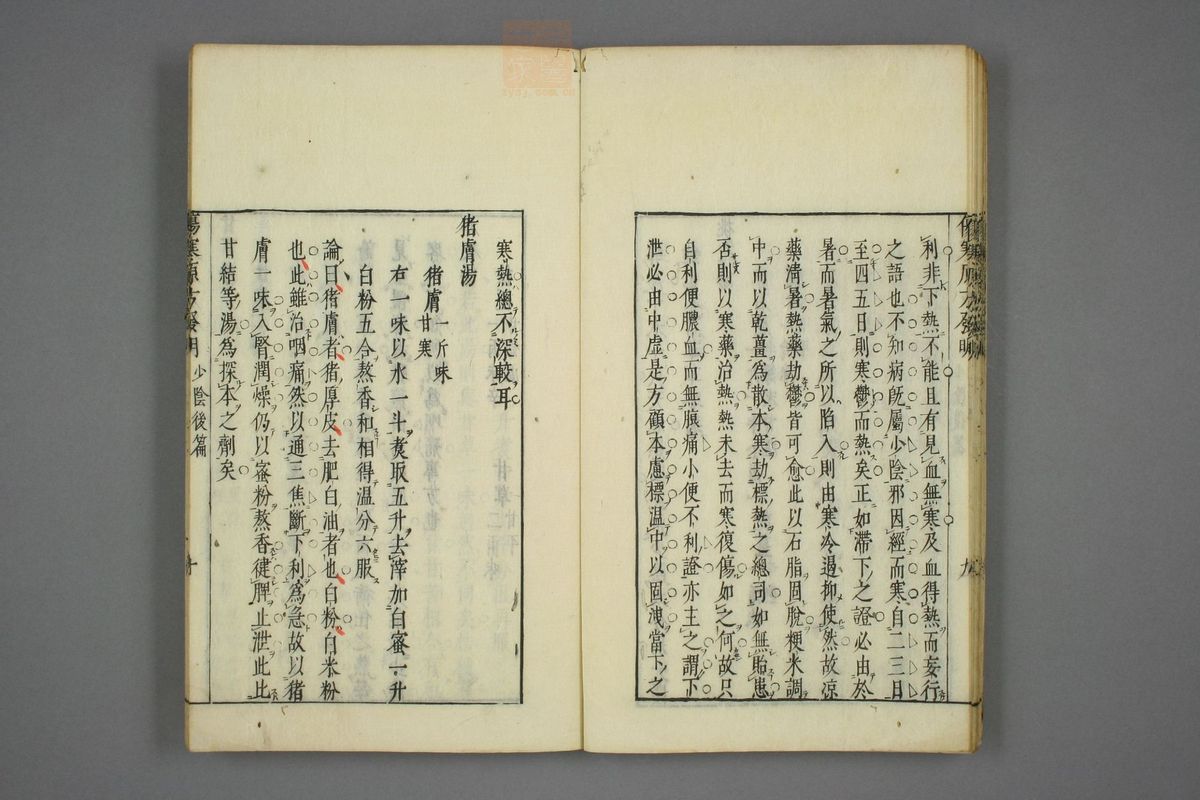 利非下熱不能且有見血無寒及血得熱而妄行
之語也不知病旣屬少陰邪因經而寒自二三日
至四五日則寒鬱而熱矣正如滯下之證必由於
暑而暑氣之所以陷入則由寒冷過抑使然故凉
藥淸暑熱藥劫鬱皆可愈此以石脂固脫粳米調
中而以乾薑爲散本寒劫標熱之總司如無貽患
否則以寒藥治熱熱未去而寒復傷如之何故只
自利便膿血而無腹痛小便不利證亦主之謂下
泄必由中虛是方顧本慮標溫中以固洩當下之
寒熱總不深較耳
猪膚湯
猪膚一斤味甘寒
右一味以水一斗煑取五升去滓加白蜜一升
白粉五合熬香和相得温分六服
論曰猪膚者猪厚皮去肥白油者也白粉白米粉
也此雖治咽痛然以通三焦斷下利爲急故以猪
膚一味入腎潤燥仍以蜜粉熬香健脾止泄此比
甘結等湯爲探本之劑矣
少陰後篇